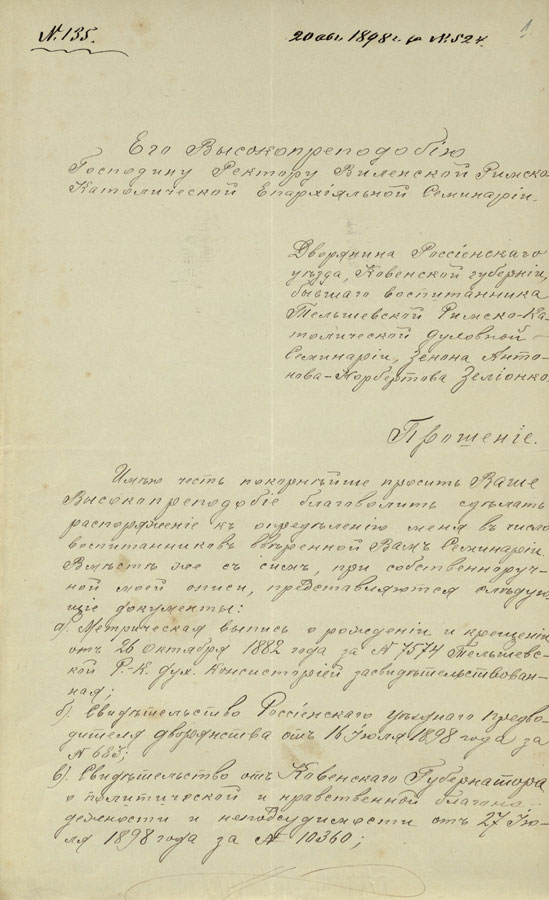 N. 135.
20 авг. 1898 г. № 524.
1
Его Высокопреподобію
Господину Ректору Виленской Римско-
Католической Епархіяльной Семинаріи.
Дворянина Россіенскаго
уѣзда, Ковенской губерніи,
бывшаго воспитанника
Тельшевской Римско-Ка-
толической духовной
Семинаріи, Зенона Анто-
нова-Норбертова Зеліонко
Прошеніе.
Имѣю честь покорнѣйше просить Ваше
Высокопреподобіе благоволить сдѣлать
распоряженіе къ опредѣленію меня въ число
воспитанниковъ ввѣренной Вамъ Семинаріи.
Вмѣстѣ же съ симъ, при собственноруч-
ной моей описи, представляются слѣдую-
щіе документы:
а). Метрическая выпись о рожденіи и крещеніи
отъ 26 октября 1882 года за № 7574 Тельшевс-
кой Р.-К. дух. Консисторіей засвидѣтельствован-
ная;
б). Свидѣтельство Россіенскаго уѣзднаго предво-
дителя дворянства отъ 16 Іюля 1898 года за
№ 685;
в). Свидѣтельство отъ Ковенскаго Губернатора
о политической и нравственной благона-
дежности и неподсудимости отъ 27 Ію-
ля 1898 года за № 10360;